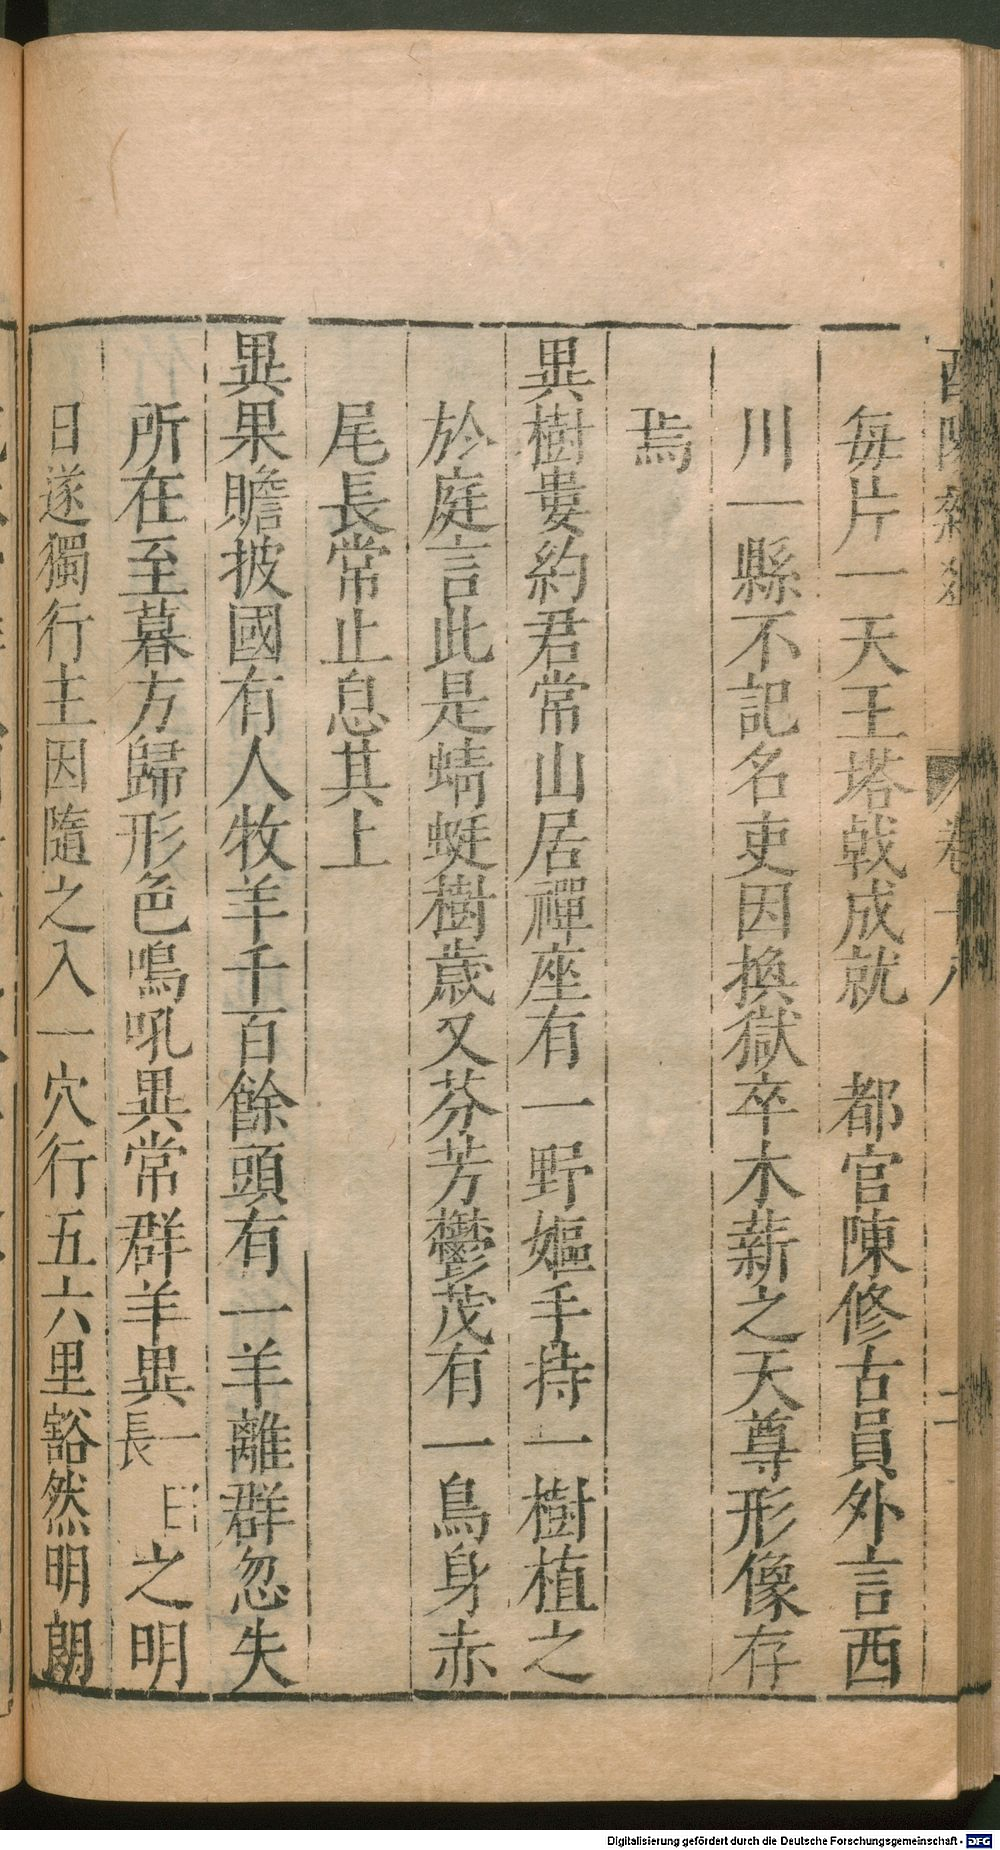 每片一天王塔戟成就　都官陳修古員外言西
川一縣不記名吏因換獄卒木薪之天尊形像存
焉
異樹婁約君常山居禪座有一野嫗手持一樹植之
於庭言此是蜻蜓樹歲又芬芳鬱茂有一鳥身赤
尾長常止息其上
異果贍披國有人牧羊千百餘頭有一羊離群忽失
所在至暮方歸形色鳴吼異常群羊異一長之明
日遂獨行主因隨之入一穴行五六里豁然明朗
Digitalisierung gefördert durch die Deutsche Forschungsgemeinschaft - DFG